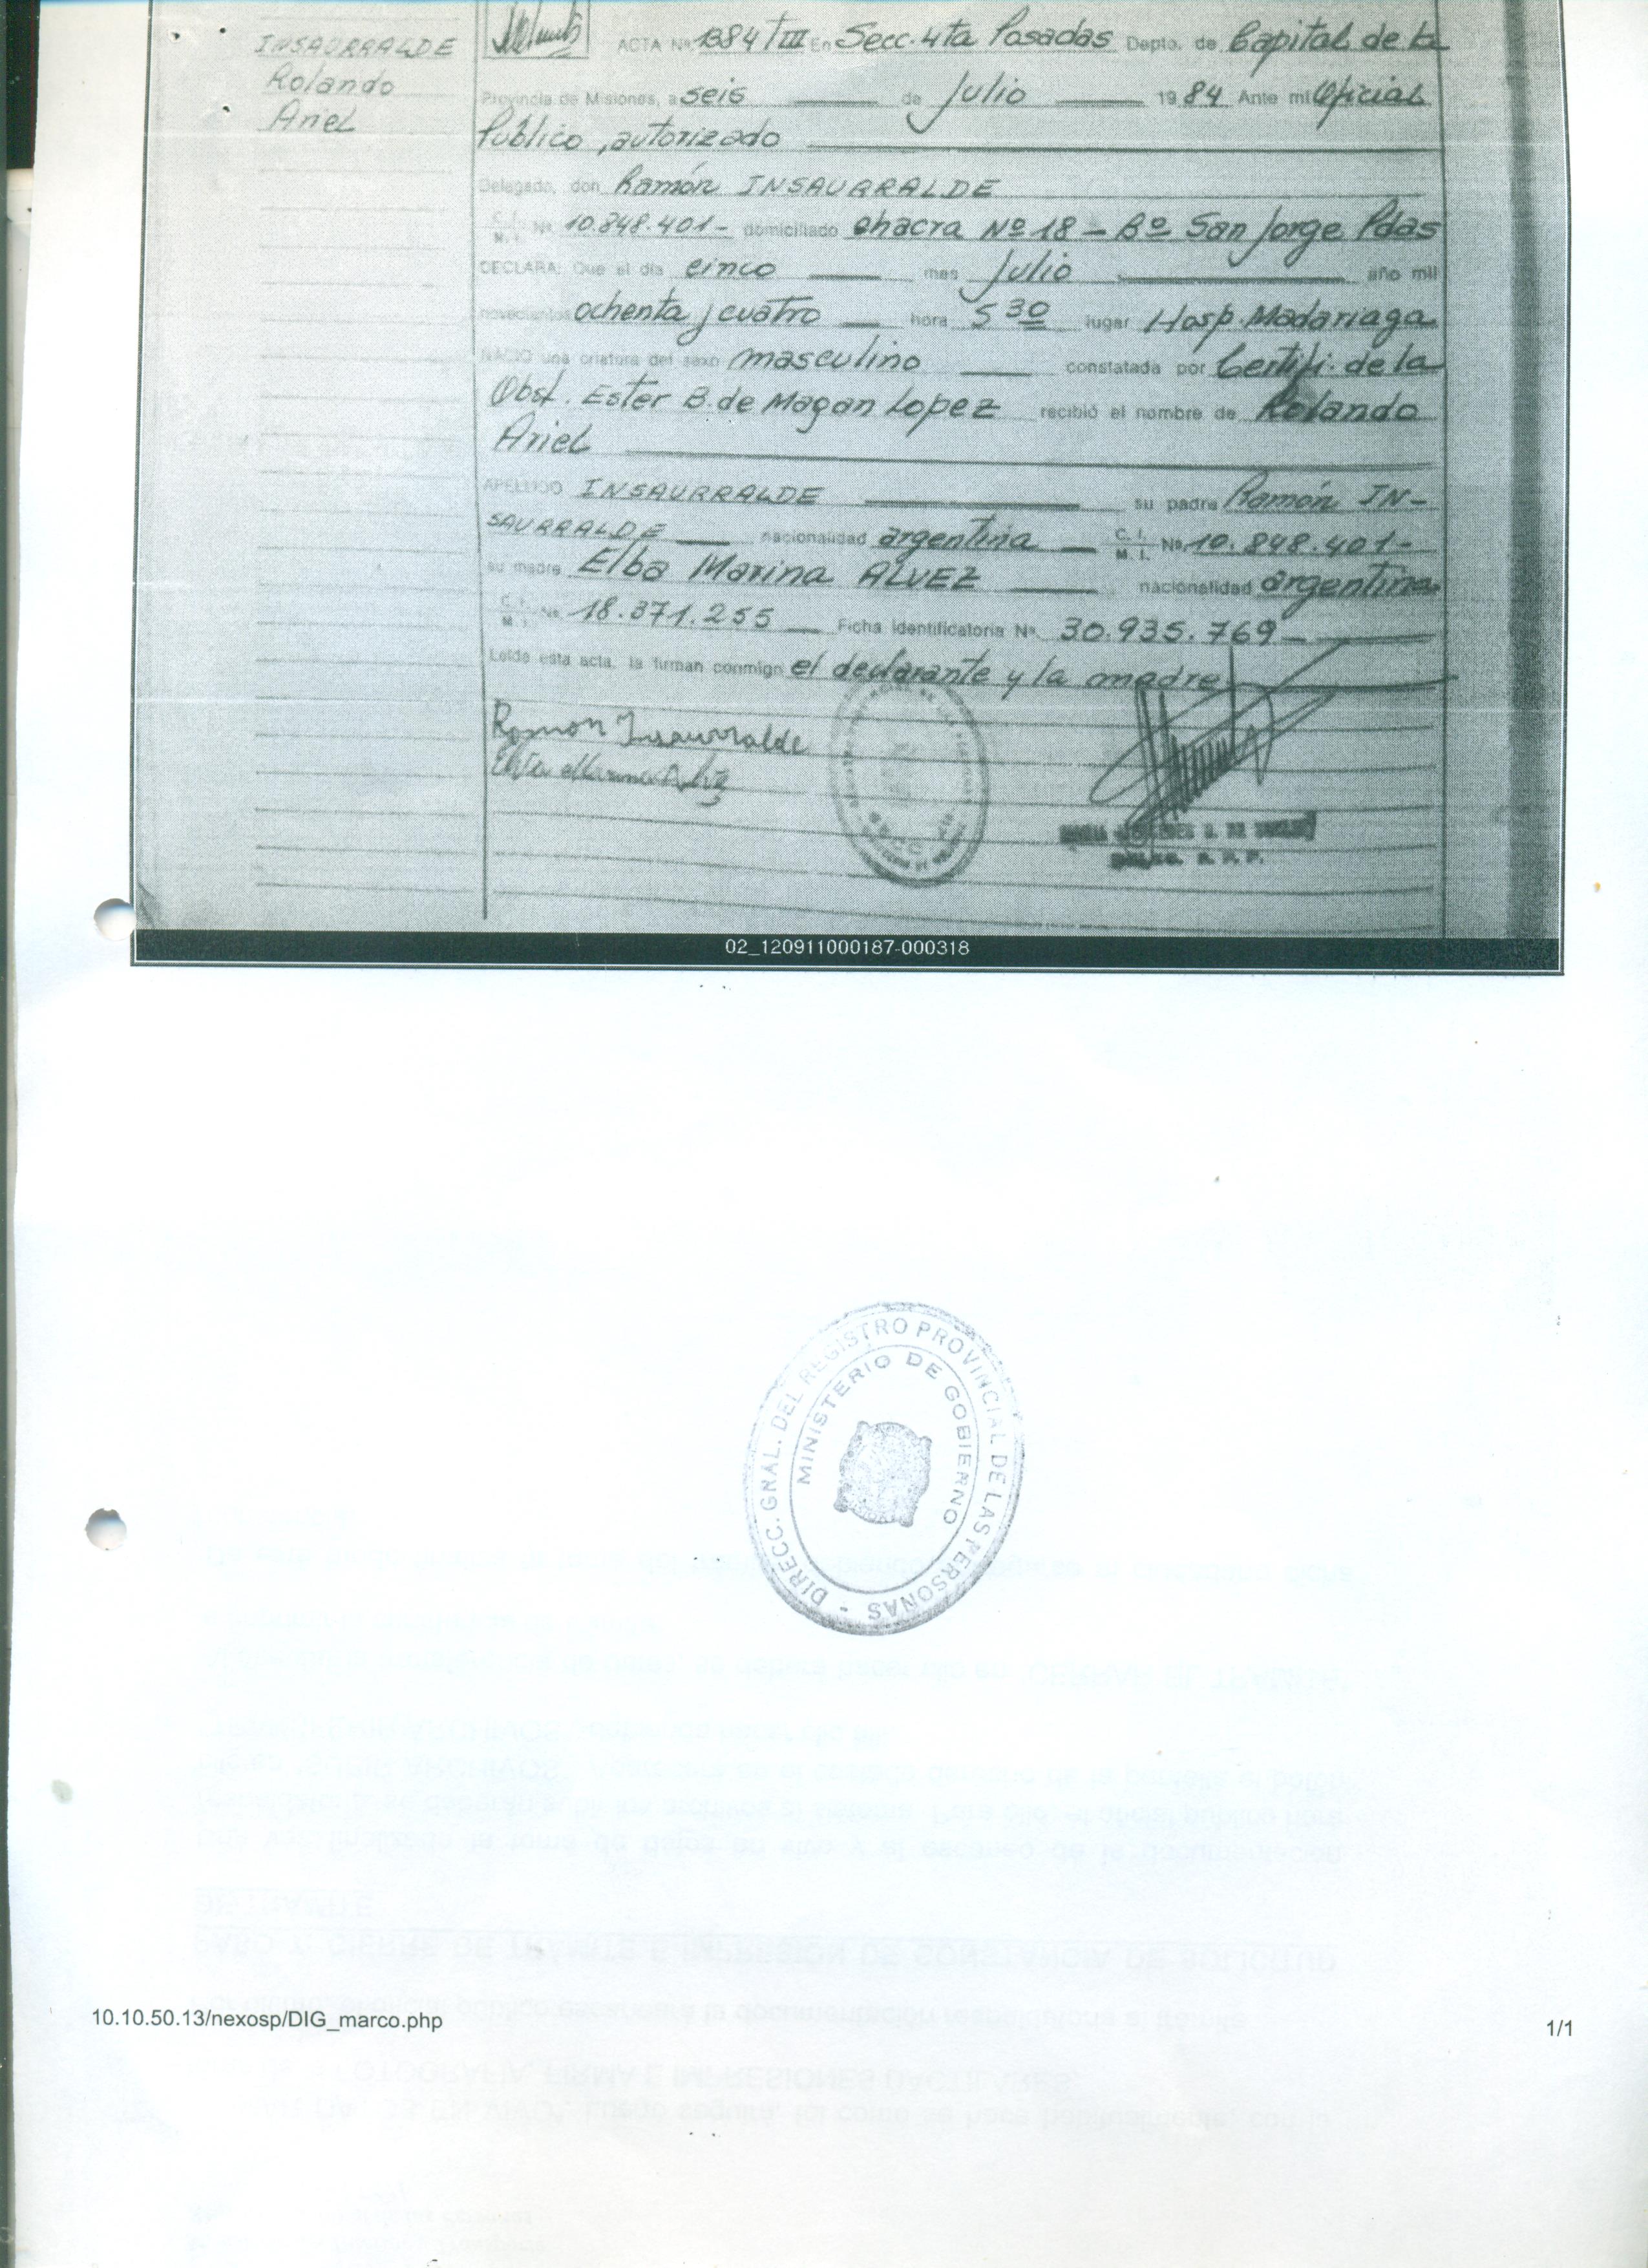 INSAURRALDE
Rolando
Ariel
ACTA Nº 1384/III En Secc. 4ta Posadas Depto. de Capital de la
Provincia de Misiones, a seis de Julio 1984 Ante mi Oficial
Público, autorizado
Delegado, don Ramón INSAURRALDE
C. I. M. I. Nº 10.848.401- domiciliado chacra Nº 18 - Bº San Jorge Pdas
DECLARA: Que el día cinco mes Julio año mil
novecientos ochenta y cuatro hora 5 30 lugar Hosp. Madariaga
NACIO una criatura del sexo masculino constatada por Certifi. de la
Obst. Ester B. de Magan Lopez recibió el nombre de Rolando
Ariel
APELLIDO INSAURRALDE su padre Ramón IN-
SAURRALDE nacionalidad argentina C. I. M. I. Nº 10.848.401-
su madre Elba Marina ALVEZ nacionalidad argentina
C. I. M. I. Nº 18.371.255 Ficha identificatoria Nº 30.935.769-
Leída esta acta, la firman conmigo el declarante y la madre
Ramon Insaurralde
02_120911000187-000318
DIRECC. GNAL. DEL REGISTRO PROVINCIAL DE LAS PERSONAS -
MINISTERIO DE GOBIERNO
10.10.50.13/nexosp/DIG_marco.php
1/1